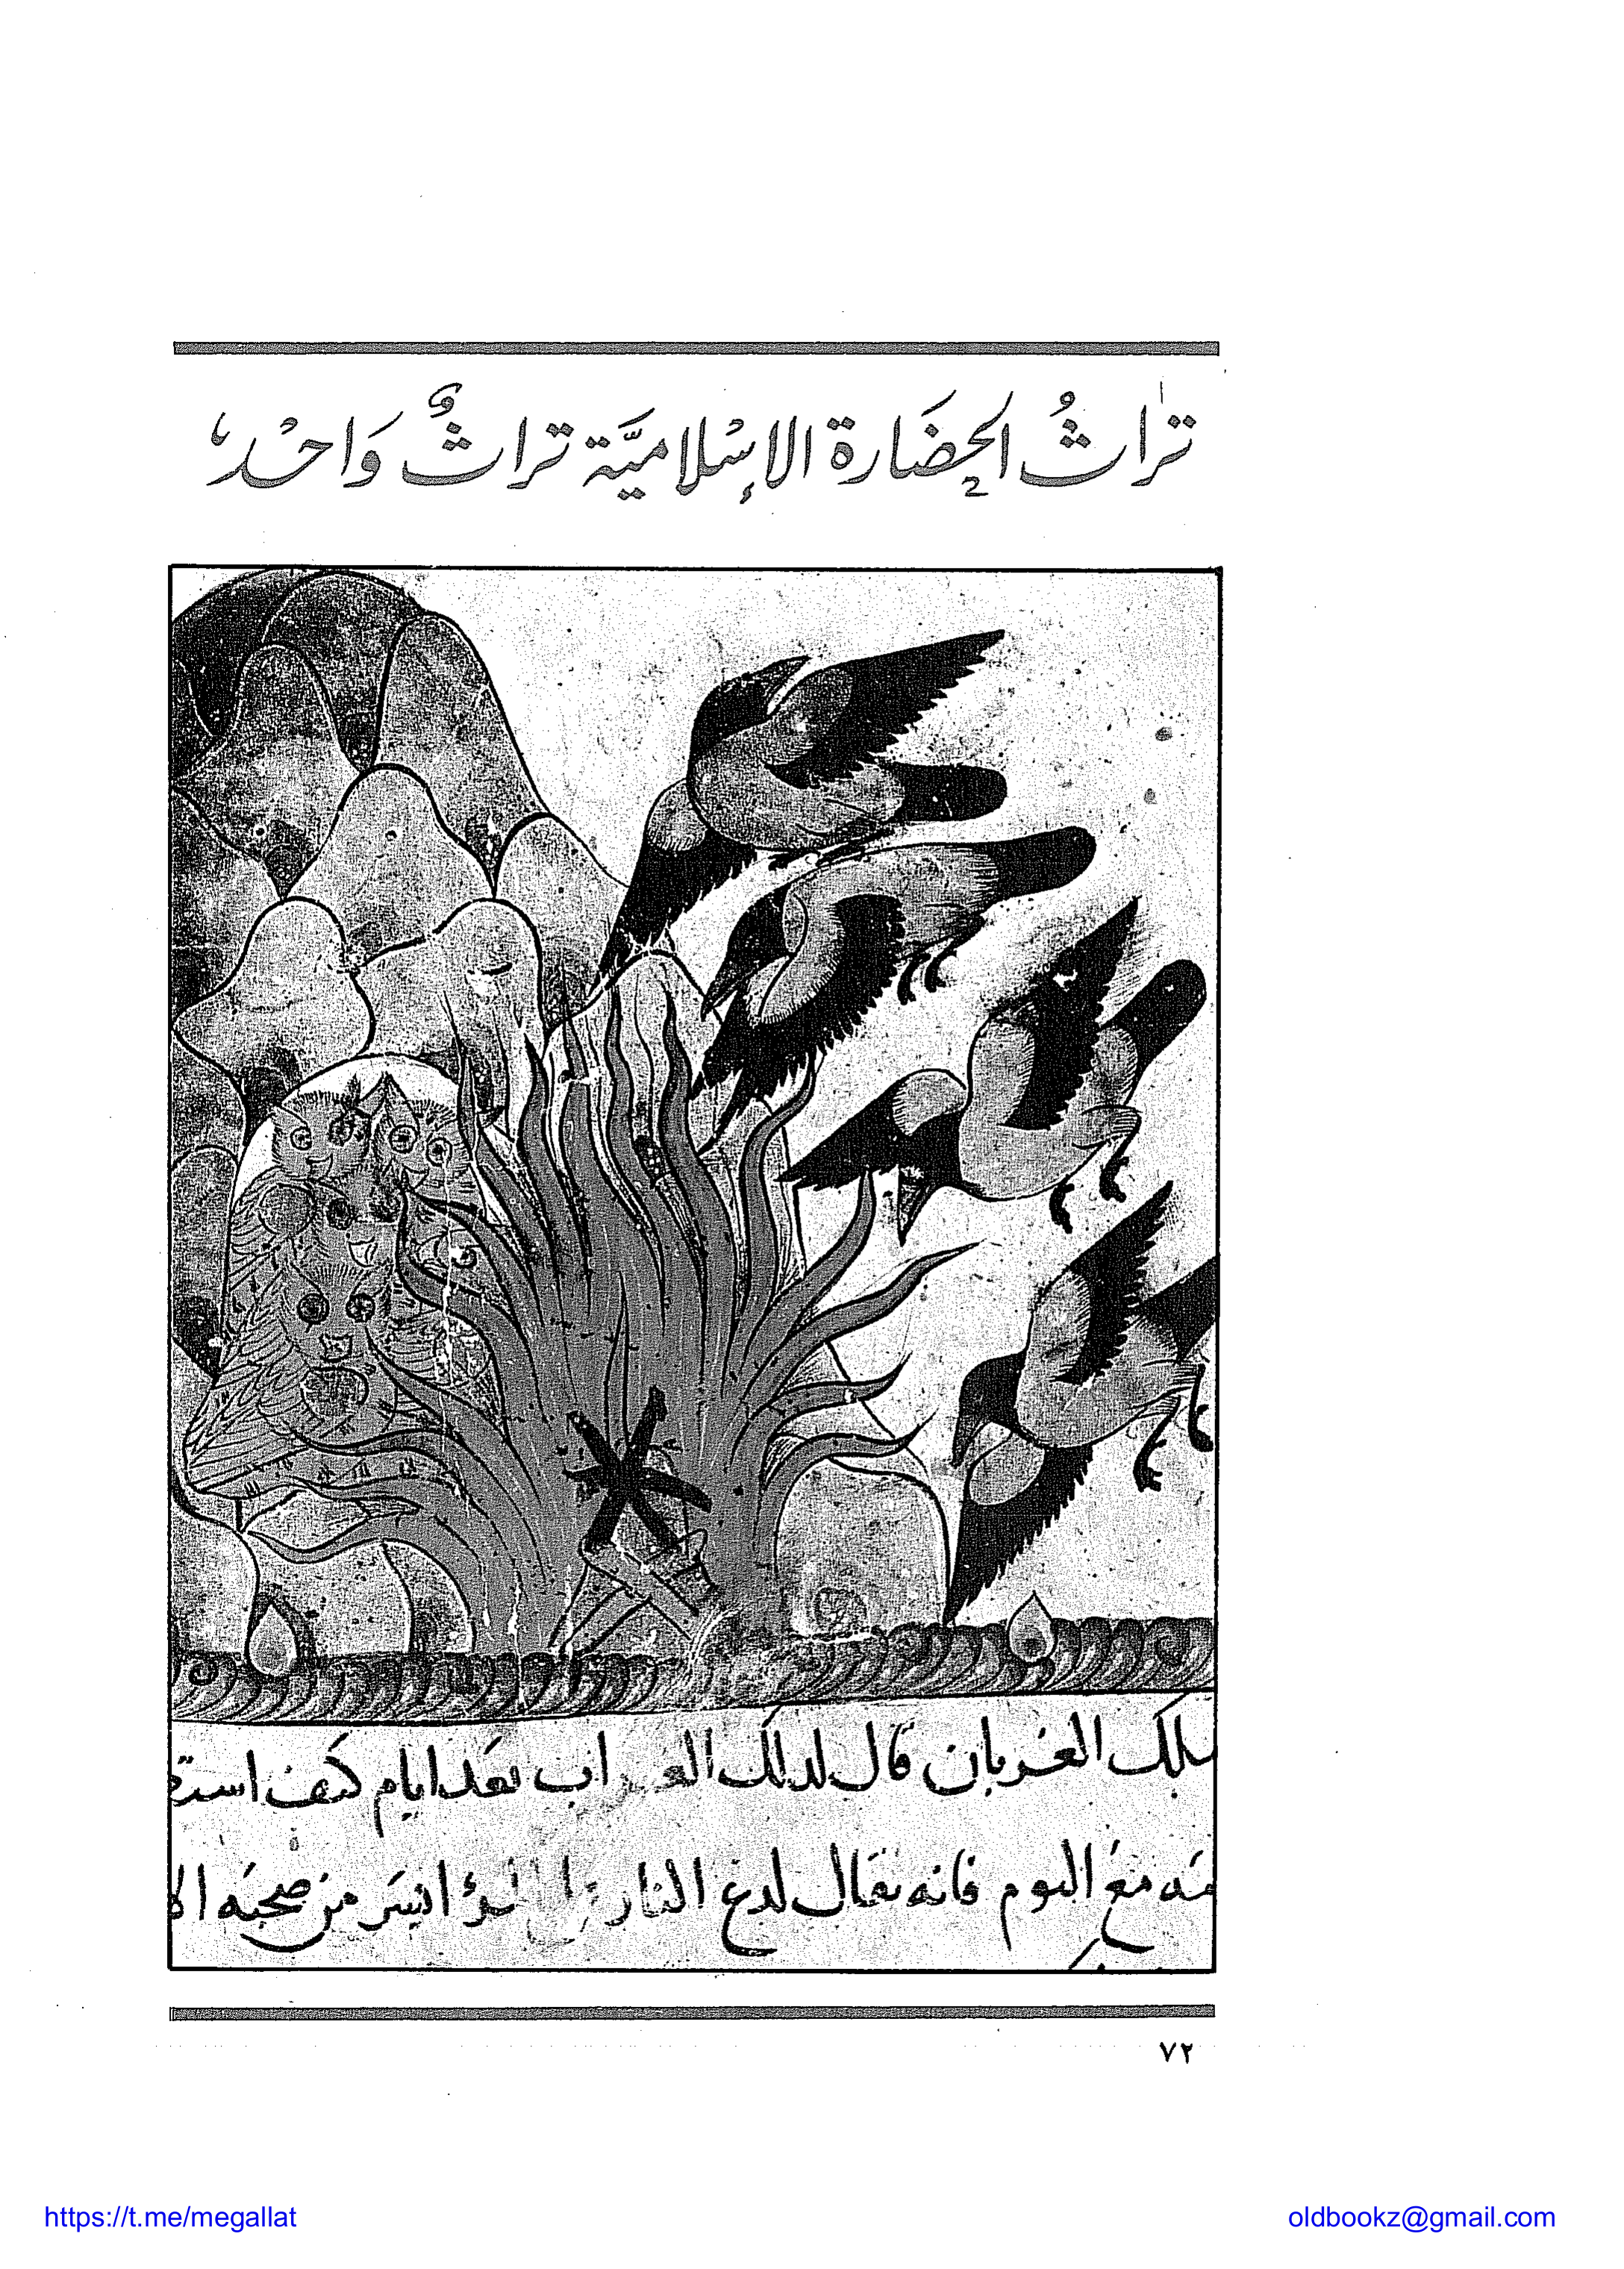 تراثُ الحضَارة الإسْلاميَّة تراثٌ وَاحْد،
ملك الغربان قال لذلك الغراب بعد ايام كيف
مع البوم فانه يقال لدغ النار ايسر من صحبة
٧٢
https://t.me/megallat
oldbookz@gmail.com